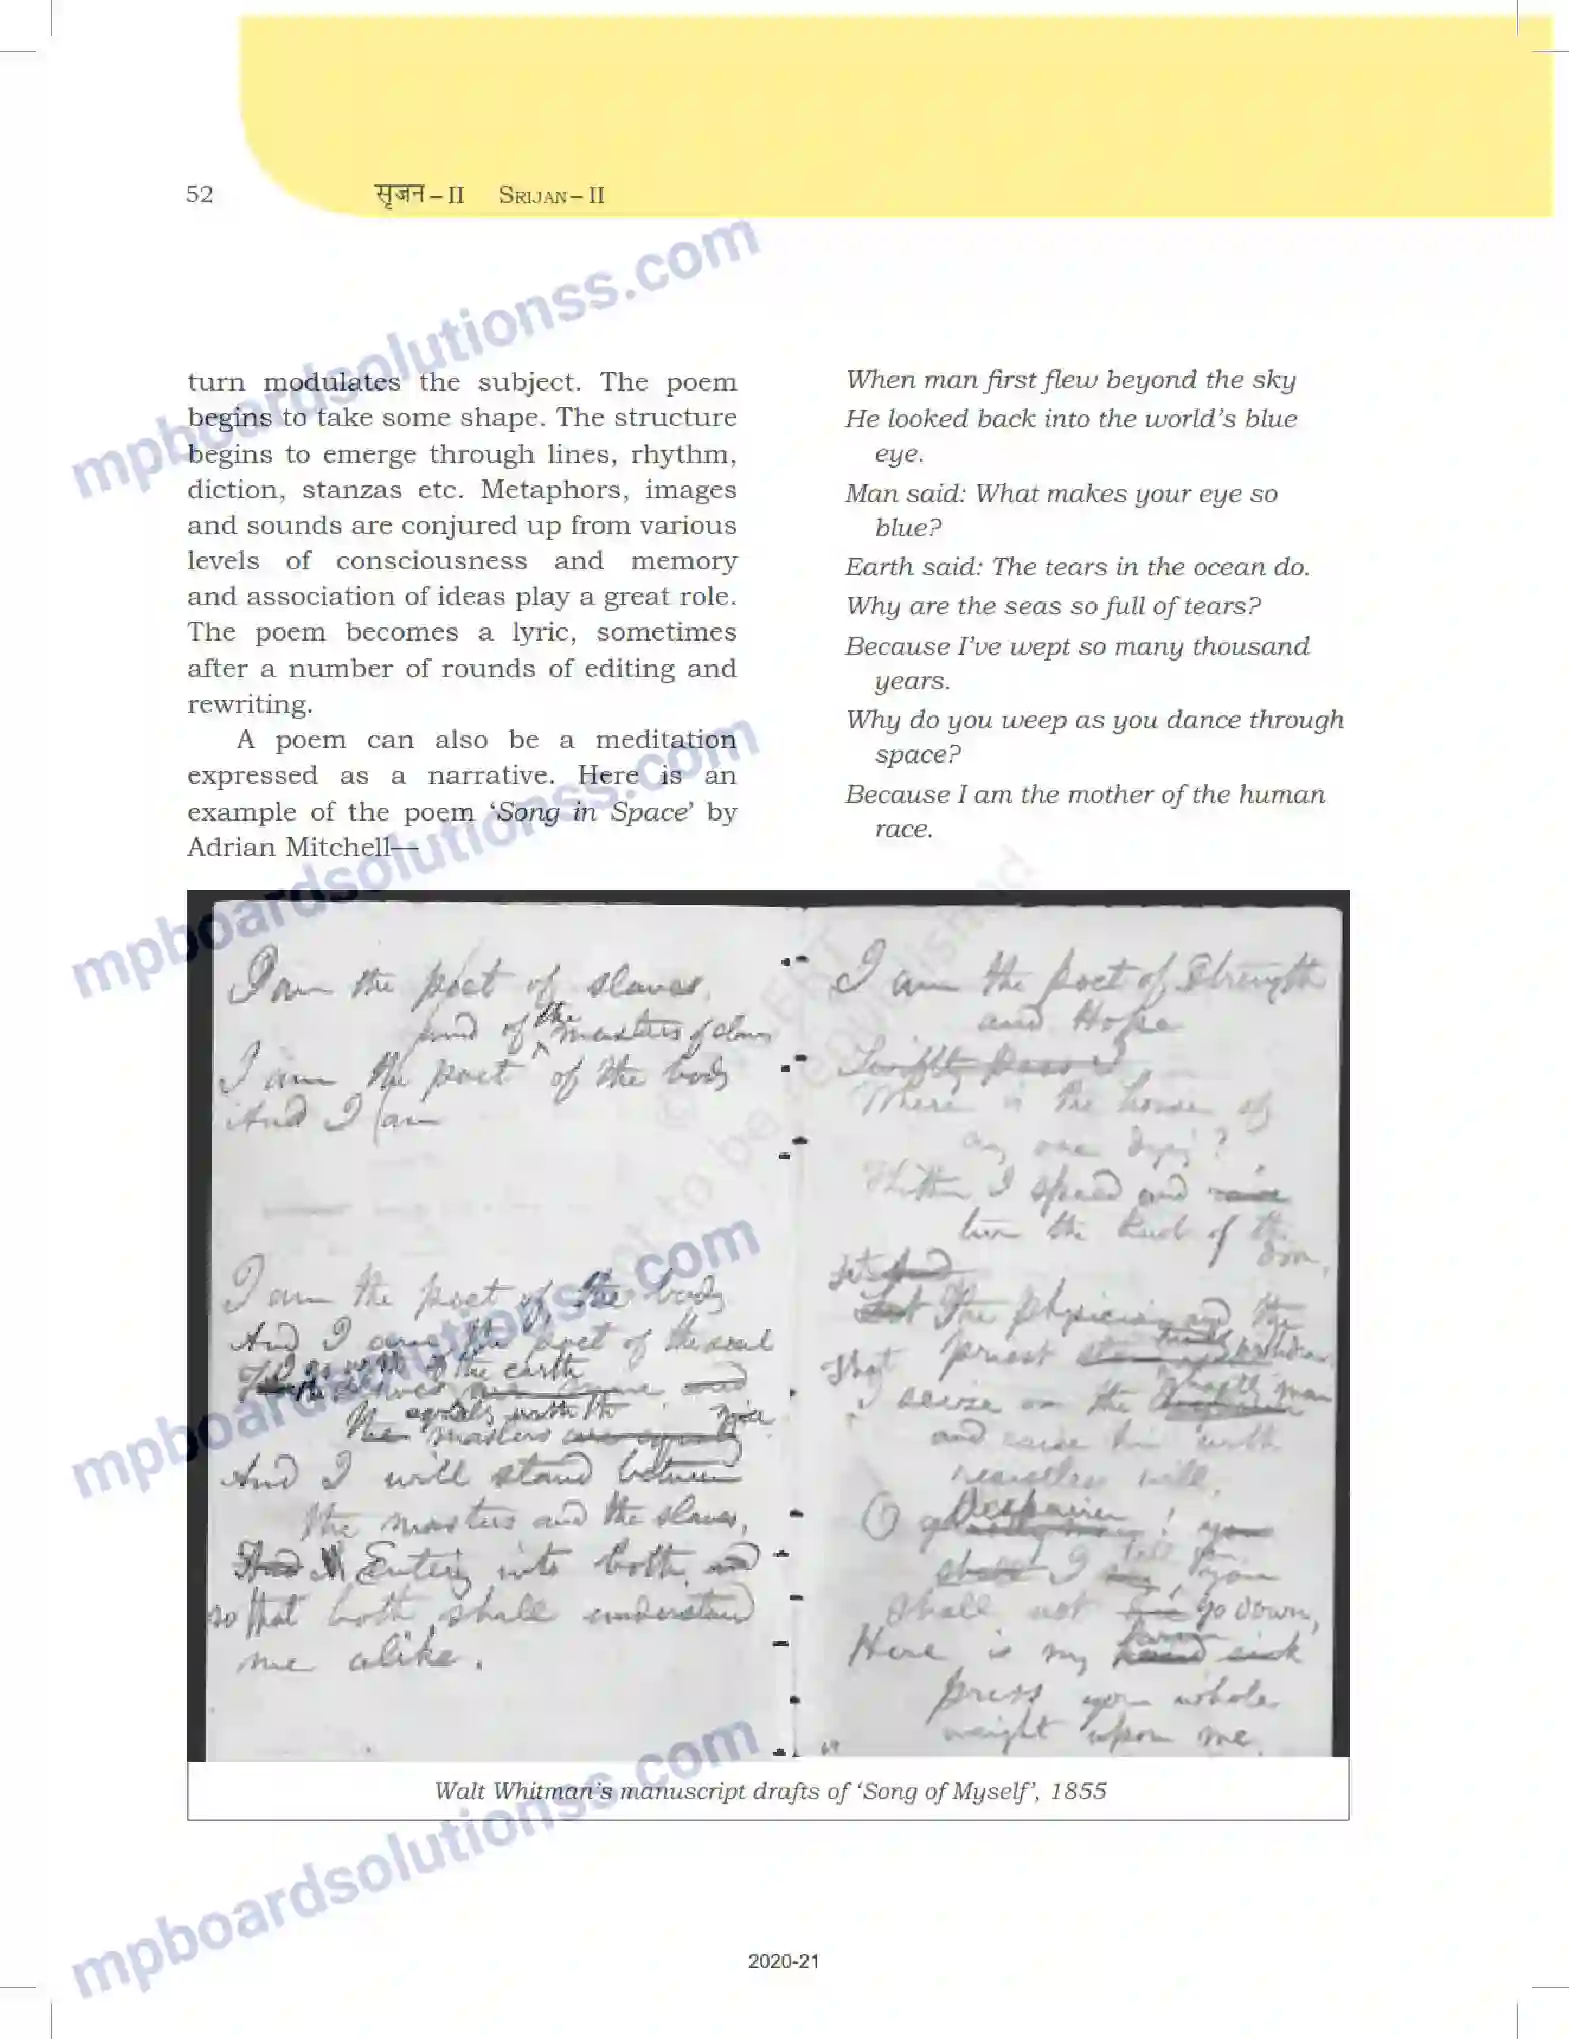 52 सृजन – II SRIJAN – II
turn modulates the subject. The poem
begins to take some shape. The structure
begins to emerge through lines, rhythm,
diction, stanzas etc. Metaphors, images
and sounds are conjured up from various
levels of consciousness and memory
and association of ideas play a great role.
The poem becomes a lyric, sometimes
after a number of rounds of editing and
rewriting.
A poem can also be a meditation
expressed as a narrative. Here is an
example of the poem ‘Song in Space’ by
Adrian Mitchell—
When man first flew beyond the sky
He looked back into the world’s blue
eye.
Man said: What makes your eye so
blue?
Earth said: The tears in the ocean do.
Why are the seas so full of tears?
Because I’ve wept so many thousand
years.
Why do you weep as you dance through
space?
Because I am the mother of the human
race.
I am the poet of slaves,
and of the masters of slaves
I am the poet of the body
And I am
I am the poet of the body
And I am the poet of the soul
of the earth
equals with the
masters
And I will stand between
the masters and the slaves,
Entering into both, and
so that both shall understand
me alike.
I am the poet of Strength
and Hope
Swiftly pass
Where is the house of
any one dying?
Thither I speed and
turn the knob of the
door,
The physician and the
priest
That
I seize on the
and raise him with
resistless will,
O despairer!
I tell you, you
shall not go down,
Here is my
press your whole
weight upon me
Walt Whitman’s manuscript drafts of ‘Song of Myself’, 1855
2020-21
mpboardsolutionss.com
mpboardsolutionss.com
mpboardsolutionss.com
mpboardsolutionss.com